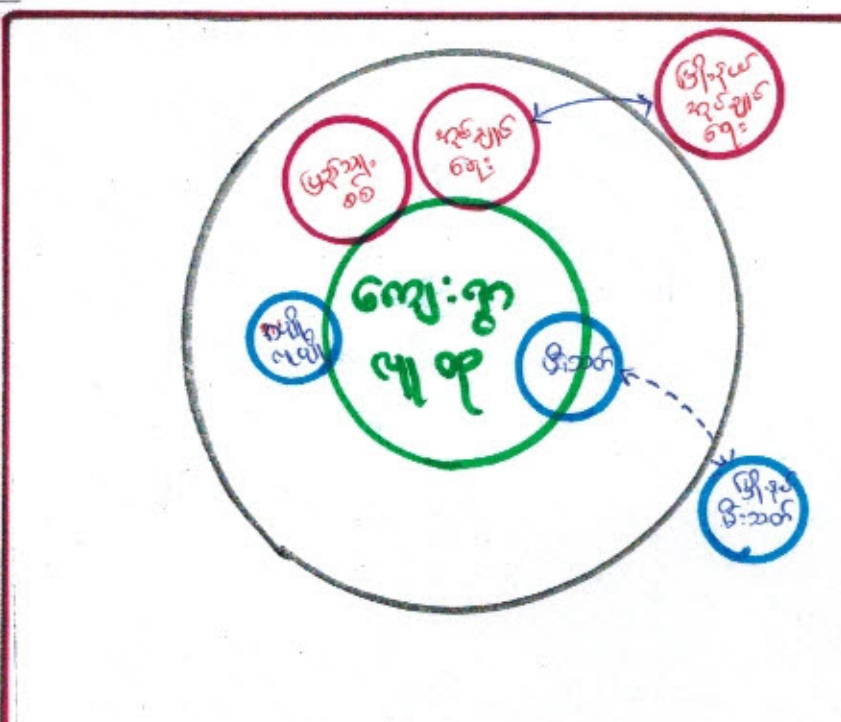 မြို့နယ်
အုပ်ချုပ်
ရေး
အုပ်ချုပ်
ရေး
ပြည်သူ့
စစ်
ကျေးရွာ
လူထု
မီးသတ်
မြို့နယ်
မီးသတ်